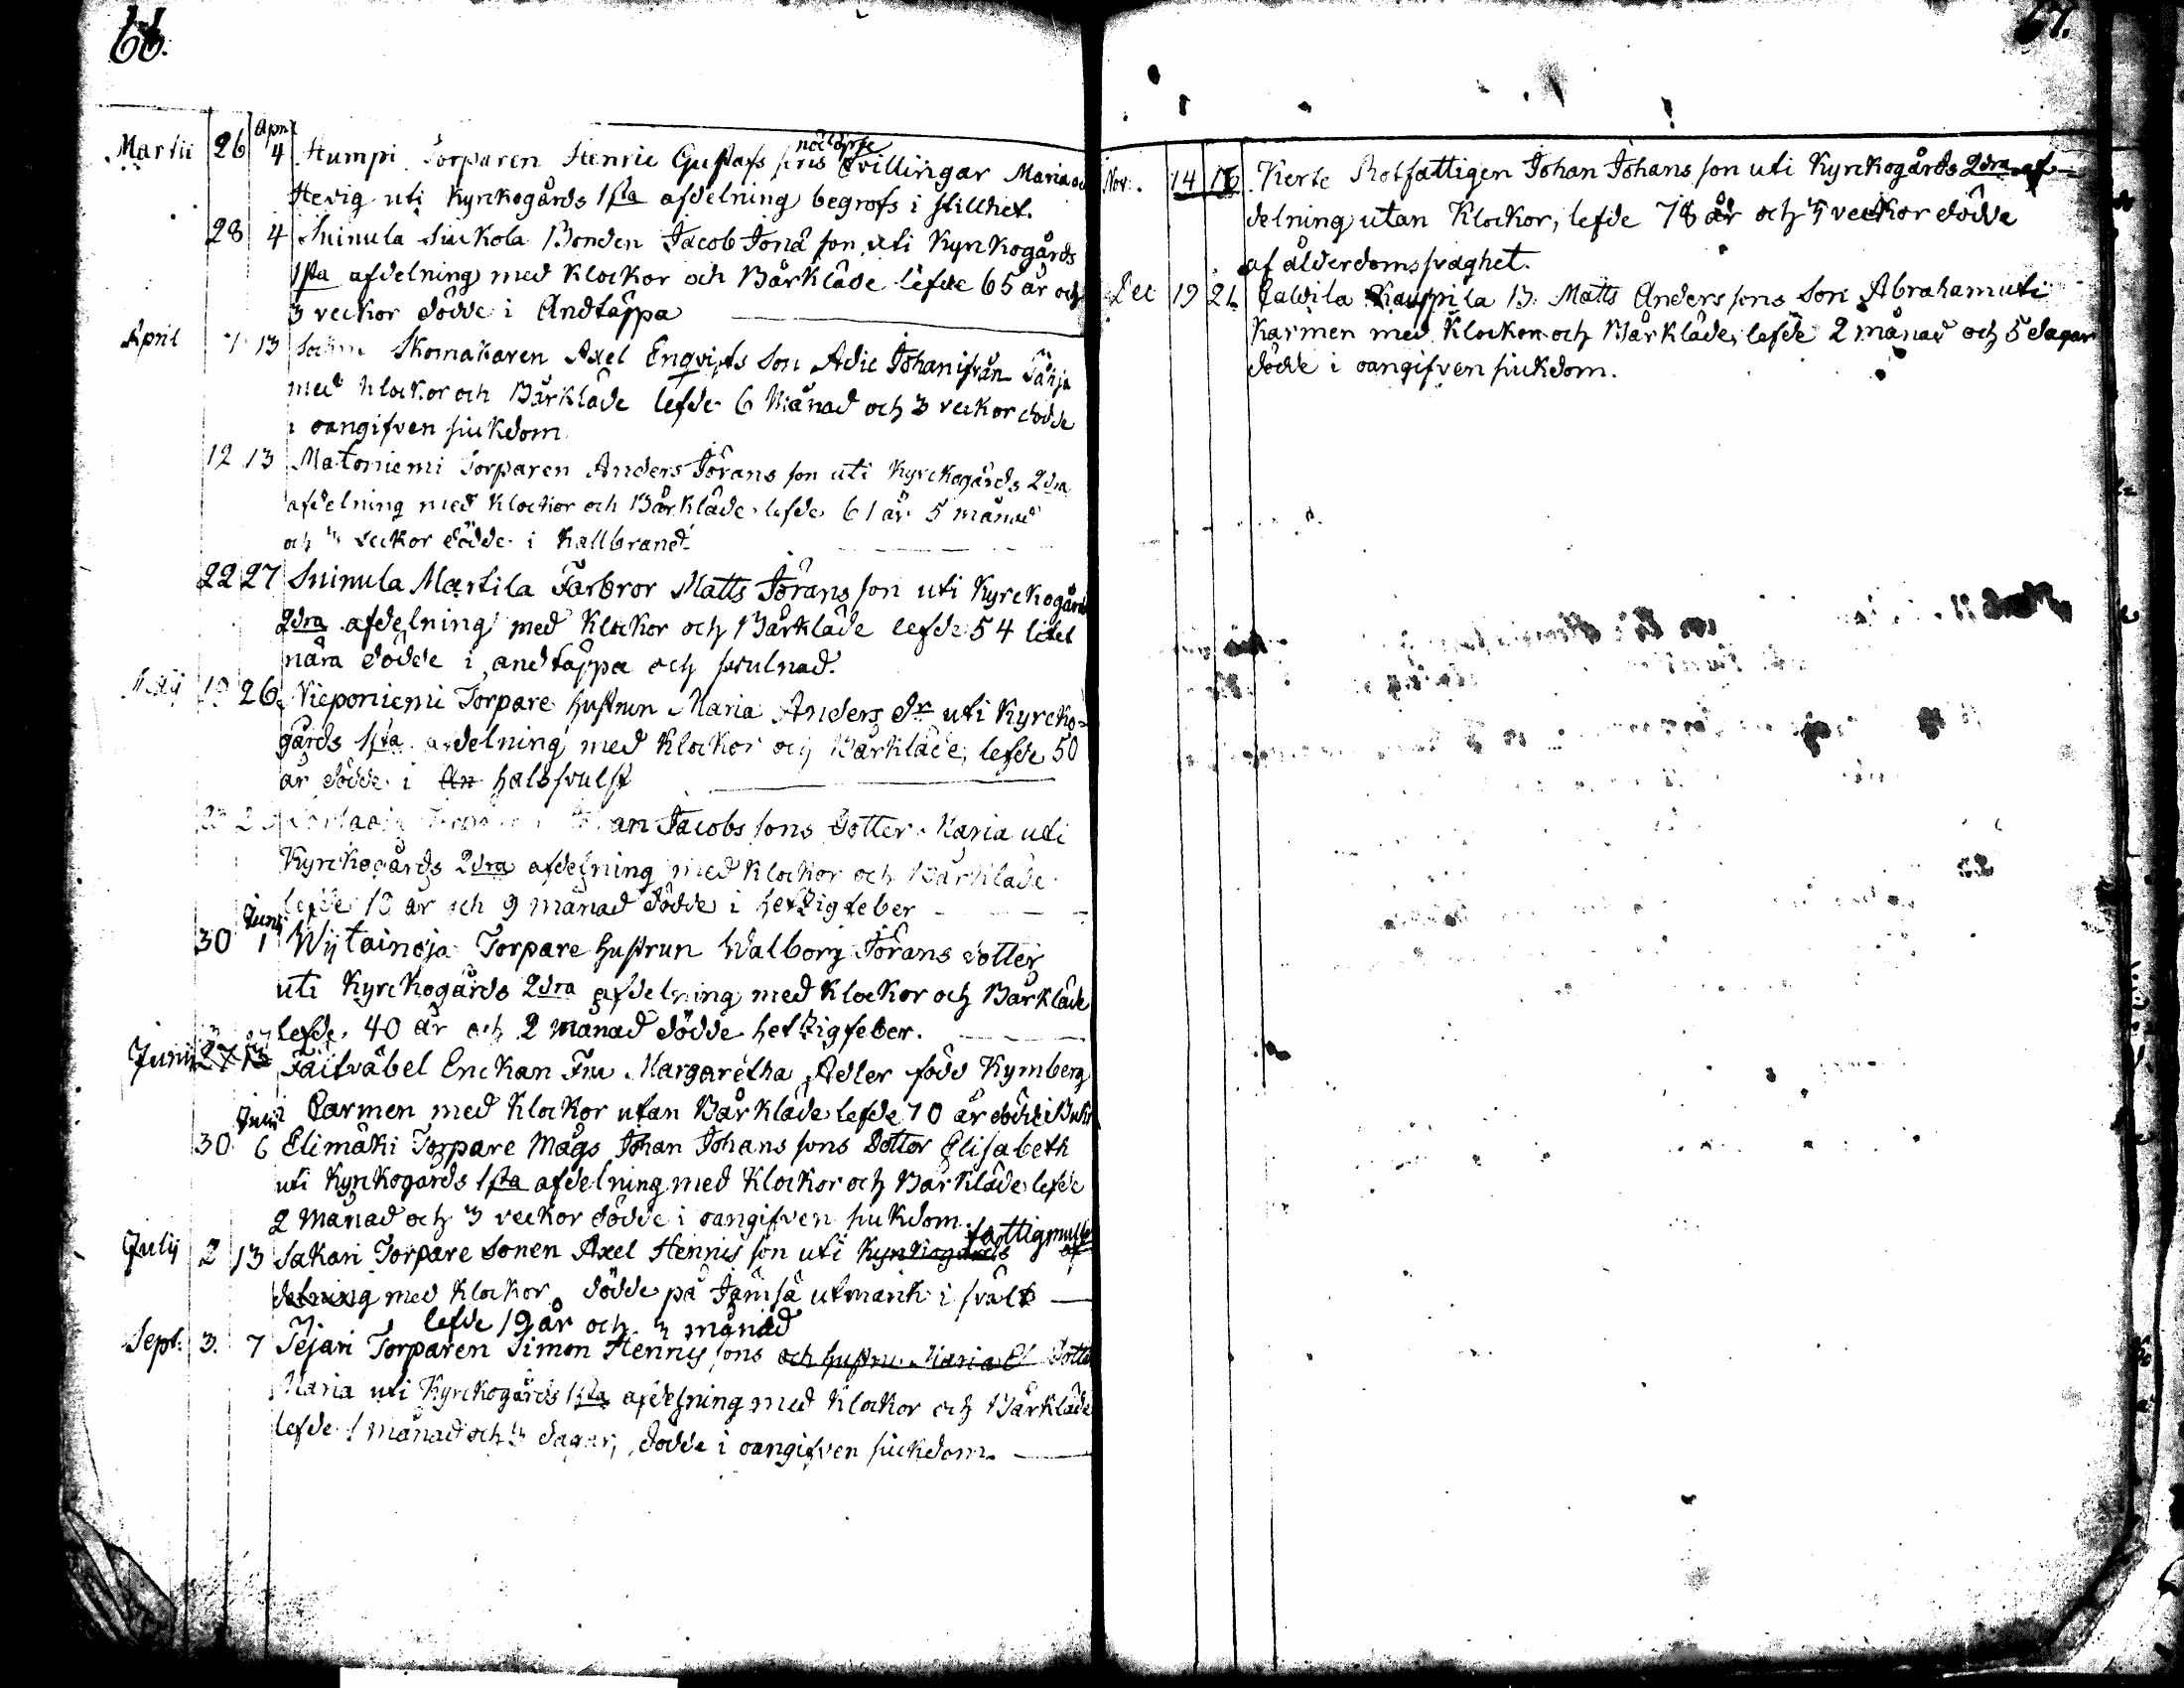 66.
April
nöddöpte
Martii 26 4 Humpi Torparen Henric Gustafs sons tvillingar Maria och
Hevig uti Kyrckogårds 1sta afdelning begrofs i stillhet.
28 4 Suinula Siukola Bonden Jacob Jona son uti Kyrckogårds
1sta afdelning med Klockor och Bårkläde lefde 65 år och
3 veckor dödde i Andtäppa
April 7 13 Skomakaren Axel Enqvists Son Adic Johan ifrån
med klockor och Bårkläde lefde 6 Månad och 3 veckor dödde
i oangifven siukdom
12 13 Matoniemi Torparen Anders Jörans son uti Kyrckogårds 2dra
afdelning med Klockor och Bårkläde lefde 61 år 5 månad
och 3 veckor dödde i Kallbrand
22 27 Suinula Martila Farbror Matts Jörans son uti Kyrckogårds
2dra afdelning med Klockor och Bårkläde lefde 54 litet
nära dödde i andtäppa och svulnad.
Maij 19 26 Nieponiemi Torpare hustrun Maria Anders dr uti Kyrcko=
gårds 1sta afdelning med Klockor och Bårkläde, lefde 50
år dödde i An halssvulst
Jacobs sons Dotter Maria uti
Kyrckogårds 2dra afdelning med Klockor och Bårkläde
lefde 18 år och 9 månad dödde i hetzig feber
Junii
30 1 Wijtainoja Torpare hustrun Walborg Jörans dotter
uti Kyrckogårds 2dra afdelning med Klockor och Bårkläde
lefde 40 år och 2 månad dödde hetzigfeber.
Junii Fältväbel Enckan Fru Margaretha Adler född Kymberg
Carmen med Klockor utan Bårkläde lefde 70 år dödde i
Julii
30 6 Elimäki Torpare Mågs Johan Johans sons Dotter Elisabeth
uti Kyrckogårds 1sta afdelning med Klockor och Bårkläde lefde
2 Månad och 3 veckor dödde i oangifven siukdom.
fattigmullen
Julij 2 13 Sakari Torpare Sonen Axel Hennis son uti Kyrckogårds af
delning med Klockor dödde på Jämsä utmark i svält
lefde 19 år och 3 månad
Sept: 3. 7 Tejari Torparen Simon Hennis sons och hustru Maria Dotter
Maria uti Kyrckogårds 1sta afdelning med Klockor och Bårkläde
lefde 1 månad och 3 dagar, dödde i oangifven siukdom.
67.
Nov: 14 16 Kerte Rotfattigen Johan Johans son uti Kyrckogårds 2dra af=
delning utan Klockor, lefde 78 år och 3 veckor dödde
af ålderdomsvaghet.
Dec 19 21 Calvila Kauppila B. Matts Anders sons Son Abraham uti
Karmen med Klockor och Bårkläde, lefde 2 månad och 5 dagar
dödde i oangifven siukdom.